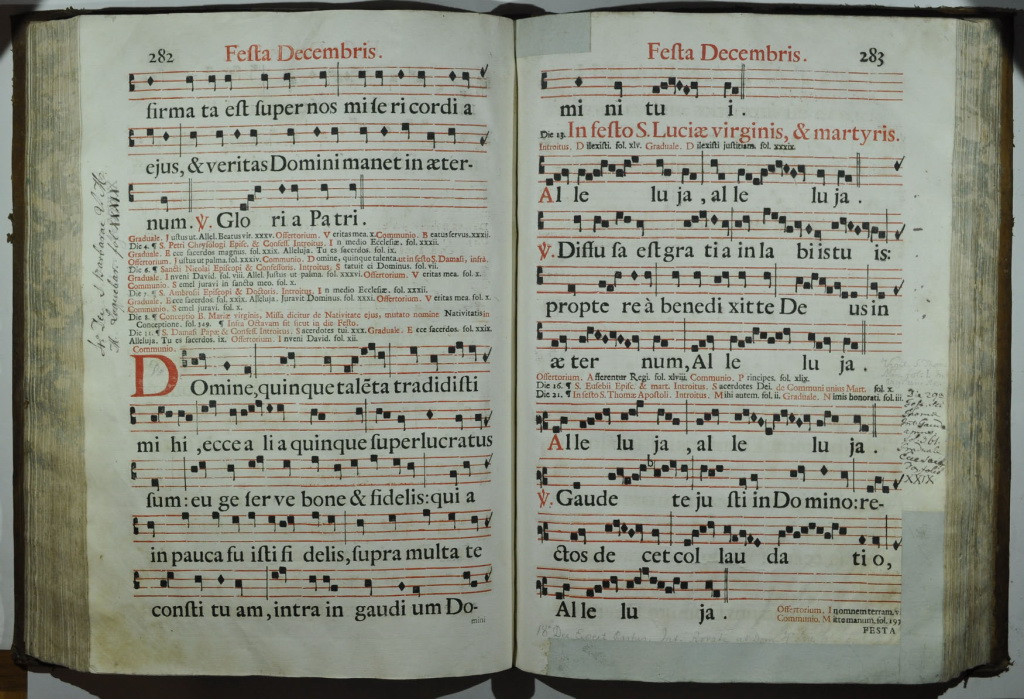 282
Feſta Decembris.
firma ta eſt ſuper nos mi ſe ri cordi a
ejus, & veritas Domini manet in æter-
num. ℣. Glo ri a Patri.
Graduale. Juſtus ut. Allel. Beatus vir. xxxv. Offertorium. Veritas mea. x. Communio. Beatus ſervus. xxxii.
Die 4. ¶ S. Petri Chryſologi Epiſc. & Confeſſ. Introitus. In medio Eccleſiæ. fol. xxxii.
Graduale. Ecce ſacerdos magnus. fol. xxix. Alleluja. Tu es ſacerdos. fol. ix.
Offertorium. Juſtus ut palma. fol. xxxiv. Communio. Domine, quinque talenta. ut in feſto S. Damaſi, infrà.
Die 6. ¶ Sancti Nicolai Epiſcopi & Confeſſoris. Introitus. Statuit ei Dominus. fol. vii.
Graduale. Inveni David. fol. viii. Allel. Juſtus ut palma. fol. xxxvi. Offertorium. Veritas mea. fol. x.
Communio. Semel juravi in ſancto meo. fol. x.
Die 7. ¶ S. Ambroſii Epiſcopi & Doctoris. Introitus. In medio Eccleſiæ. fol. xxxii.
Graduale. Ecce ſacerdos. fol. xxix. Alleluja. Juravit Dominus. fol. xxxi. Offertorium. Veritas mea. fol. x.
Communio. Semel juravi. fol. x.
Die 8. ¶ Conceptio B. Mariæ virginis. Miſſa dicitur de Nativitate ejus, mutato nomine Nativitatis in
Conceptione. fol. 249. ¶ Infra Octavam fit ſicut in die Feſto.
Die 11. ¶ S. Damaſi Papæ & Confeſſ. Introitus. Sacerdotes tui. xxx. Graduale. Ecce ſacerdos. fol. xxix.
Alleluja. Tu es ſacerdos. ix. Offertorium. Inveni David. fol. xii.
Communio.
DOmine, quinque talēta tradidiſti
mi hi, ecce a li a quinque ſuperlucratus
ſum: eu ge ſer ve bone & fidelis: qui a
in pauca fu iſti fi delis, ſupra multa te
conſti tu am, intra in gaudi um Do-
mini
Feſta Decembris.
283
mi ni tu i.
Die 13. In feſto S. Luciæ virginis, & martyris.
Introitus. Dilexiſti. fol. xlv. Graduale. Dilexiſti juſtitiam. fol. xxxix.
Al le lu ja, al le lu ja.
℣. Diffu ſa eſt gra ti a in la bi is tu is:
propte re à benedi xit te De us in
æ ter num, Al le lu ja.
Offertorium. Afferentur Regi. fol. xlviii. Communio. Principes. fol. xlix.
Die 16. ¶ S. Euſebii Epiſc. & mart. Introitus. Sacerdotes Dei. de Communi unius Mart. fol. x.
Die 21. ¶ In feſto S. Thomæ Apoſtoli. Introitus. Mihi autem. fol. ii. Graduale. Nimis honorati. fol. iii.
Alle lu ja, al le lu ja.
℣. Gaude te ju ſti in Do mino: re-
ctos de cet col lau da ti o,
Al le lu ja.
Offertorium. In omnem terram. v.
Communio. Mitte manum. fol. 193
FESTA